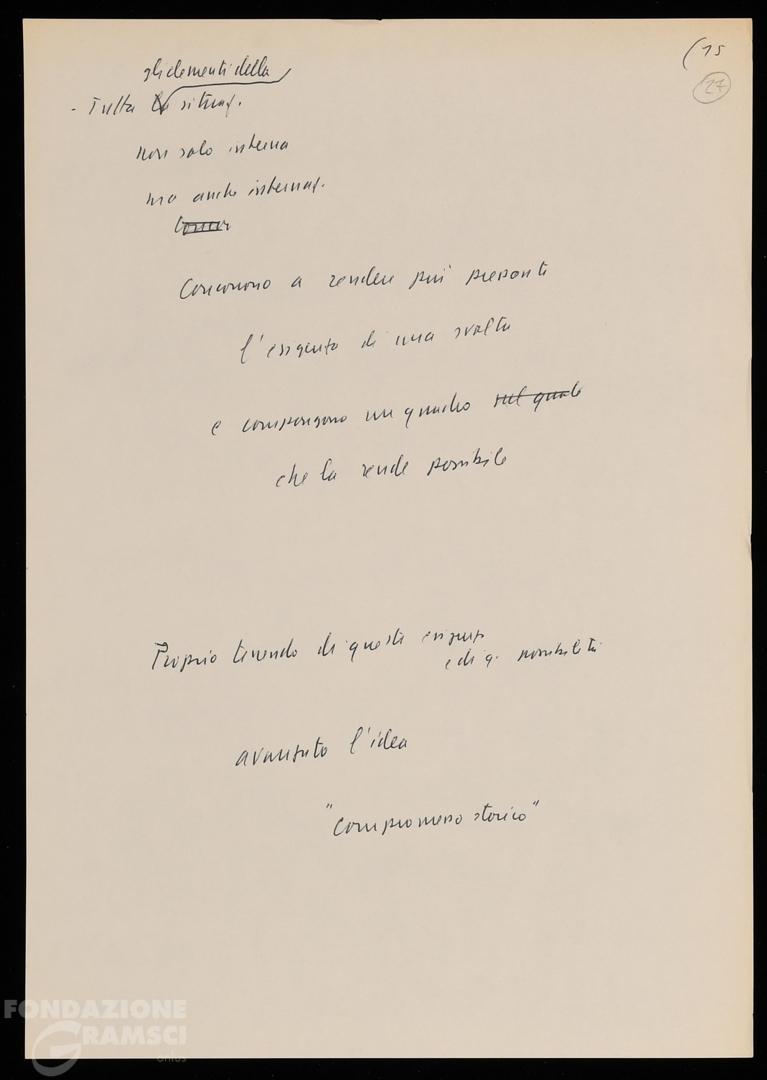 (15
27
gli elementi della
- Tutta la situaz.
non solo interna
ma anche internaz.
Concorrono a rendere più pressante
l'esigenza di una svolta
e compongono un quadro sul quale
che la rende possibile
Proprio tenendo di queste esigenze
e di q. possibilità
avanzato l'idea
"compromesso storico"
FONDAZIONE
GRAMSCI
onlus